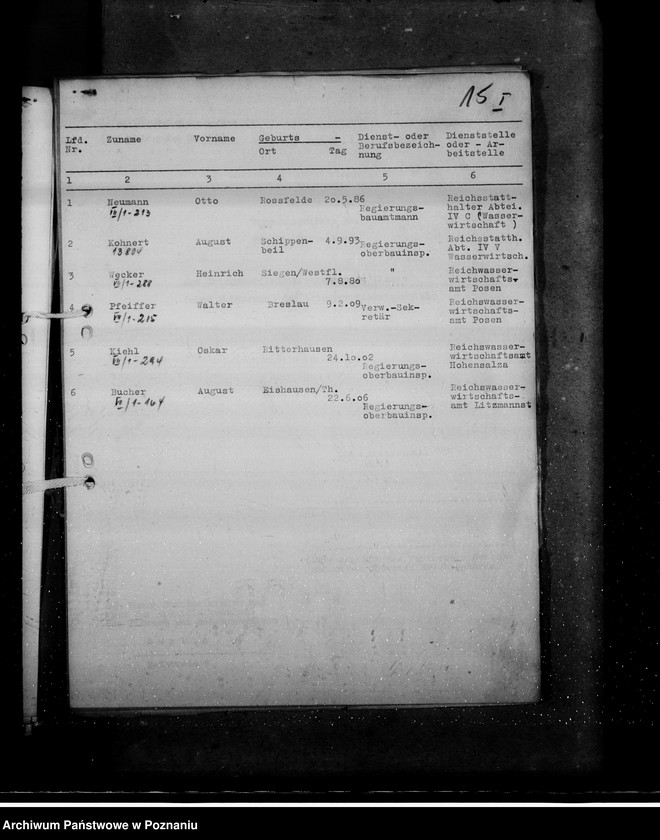 15 I
Lfd. Nr. Zuname Vorname Geburts - Ort Tag Dienst- oder Berufsbezeich- nung Dienststelle oder - Ar- beitstelle
1 2 3 4 5 6
1 Neumann Otto Rossfelde 20.5.86 Regierungs- bauamtmann Reichsstatt- halter Abtei. IV C (Wasser- wirtschaft )
VII/1-213
2 Kohnert August Schippen- beil 4.9.93 Regierungs- oberbauinsp. Reichsstatth. Abt. IV V Wasserwirtsch.
3 Wecker Heinrich Siegen/Westfl. 7.8.80 " Reichwasser- wirtschafts- amt Posen
VII/1-288
4 Pfeiffer Walter Breslau 9.2.09 Verw.-Sek- retär Reichswasser- wirtschafts- amt Posen
VII/1-215
5 Kiehl Oskar Ritterhausen 24.10.02 Regierungs- oberbauinsp. Reichswasser- wirtschaftsamt Hohensalza
VII/1-294
6 Bucher August Eishausen/Th. 22.6.06 Regierungs- oberbauinsp. Reichswasser- wirtschafts- amt Litzmannst
VII/1-164
Archiwum Państwowe w Poznaniu